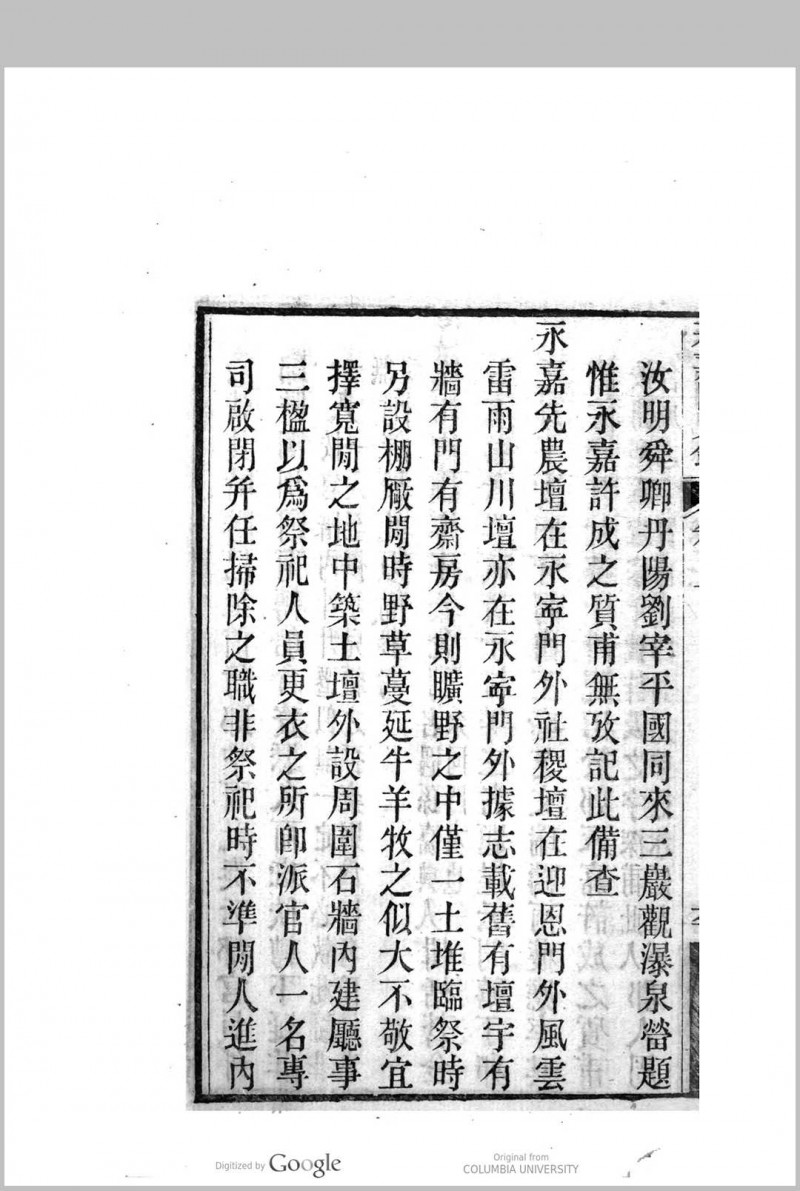 汝明舜卿丹陽劉宰平國同來三巖觀瀑泉嘗題
惟永嘉許成之質甫無攷記此備查
永嘉先農壇在永寧門外社稷壇在迎恩門外風雲
雷雨山川壇亦在永寧門外據志載舊有壇宇有
牆有門有齋房今則曠野之中僅一土堆臨祭時
另設棚廠閒時野草蔓延牛羊牧之似大不敬宜
擇寬閒之地中築土壇外設周圍石牆內建廳事
三楹以爲祭祀人員更衣之所卽派官人一名專
司啟閉并任掃除之職非祭祀時不準閒人進內
Digitized by Google
Original from
COLUMBIA UNIVERSITY